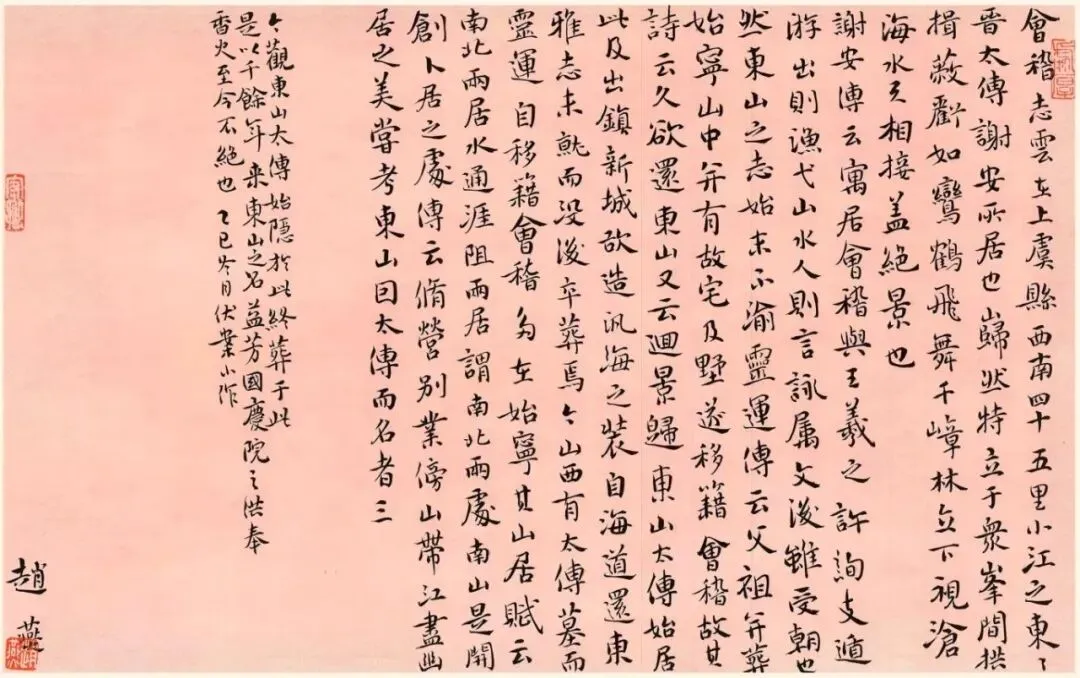 會稽志雲在上虞縣西南四十五里小江之東〻
晉太傅謝安所居也山歸然特立于衆峯間拱
揖蔽虧如鸞鶴飛舞千嶂林立下視滄
海水天相接盖絕景也
謝安傳云寓居會稽與王羲之許詢支遁
游出則漁弋山水入則言詠属文後雖受朝也
然東山之志始末不渝靈運傳云父祖并葬
始寧山中并有故宅及墅遂移籍會稽故其
詩云久欲還東山又云迴景歸東山太傅始居
此及出鎮新城欲造汎海之裝自海道還東
雅志未就而没後卒葬焉今山西有太傅墓而
靈運自移籍會稽多在始寧其山居賦云
南北兩居水通涯阻兩居謂南北兩處南山是開
創卜居之處傳云脩營别業傍山帶江盡幽
居之美嘗考東山因太傅而名者三
今觀東山太傅始隱於此終葬于此
是以千餘年来東山之名益芳國慶院之洪奉
香火至今不絕也 乙巳冬月伏案小作
趙燕